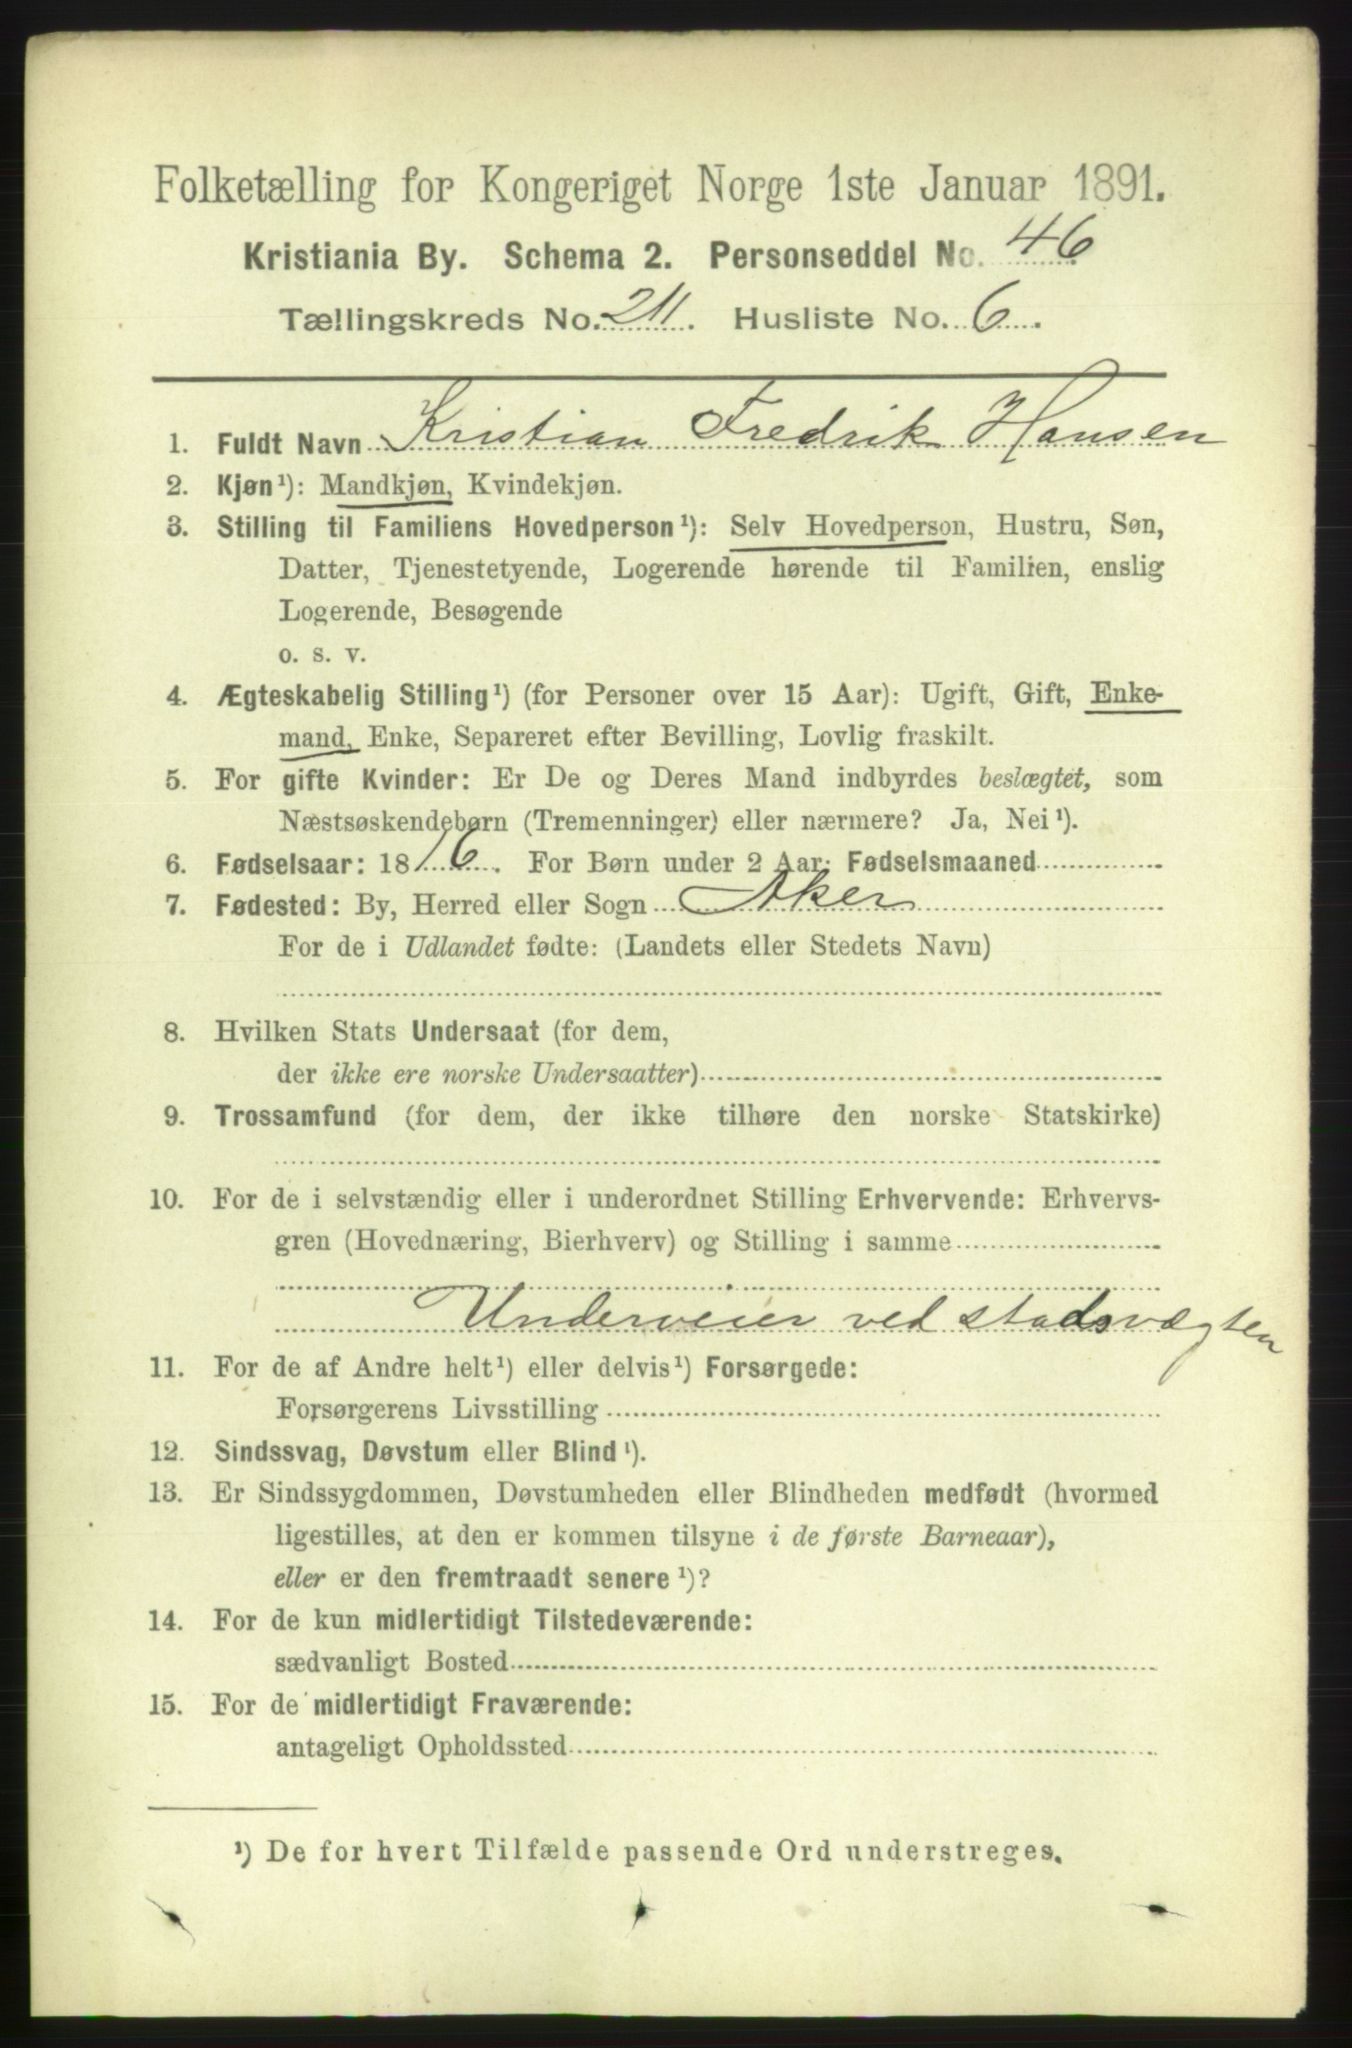 Folketælling for Kongeriget Norge 1ste Januar 1891.
Kristiania By. Schema 2. Personseddel No. 46
Tællingskreds No. 211. Husliste No. 6.
1. Fuldt Navn Kristian Fredrik Hansen
2. Kjøn¹): Mandkjøn, Kvindekjøn.
3. Stilling til Familiens Hovedperson¹): Selv Hovedperson, Hustru, Søn,
Datter, Tjenestetyende, Logerende hørende til Familien, enslig
Logerende, Besøgende
o. s. v.
4. Ægteskabelig Stilling¹) (for Personer over 15 Aar): Ugift, Gift, Enke-
mand, Enke, Separeret efter Bevilling, Lovlig fraskilt.
5. For gifte Kvinder: Er De og Deres Mand indbyrdes beslægtet, som
Næstsøskendebørn (Tremenninger) eller nærmere? Ja, Nei¹).
6. Fødselsaar: 1816. For Børn under 2 Aar: Fødselsmaaned
7. Fødested: By, Herred eller Sogn Aker
For de i Udlandet fødte: (Landets eller Stedets Navn)
8. Hvilken Stats Undersaat (for dem,
der ikke ere norske Undersaatter)
9. Trossamfund (for dem, der ikke tilhøre den norske Statskirke)
10. For de i selvstændig eller i underordnet Stilling Erhvervende: Erhvervs-
gren (Hovednæring, Bierhverv) og Stilling i samme
Underveier ved stadsvægten
11. For de af Andre helt¹) eller delvis¹) Forsørgede:
Forsørgerens Livsstilling
12. Sindssvag, Døvstum eller Blind¹).
13. Er Sindssygdommen, Døvstumheden eller Blindheden medfødt (hvormed
ligestilles, at den er kommen tilsyne i de første Barneaar),
eller er den fremtraadt senere¹)?
14. For de kun midlertidigt Tilstedeværende:
sædvanligt Bosted
15. For de midlertidigt Fraværende:
antageligt Opholdssted
¹) De for hvert Tilfælde passende Ord understreges.